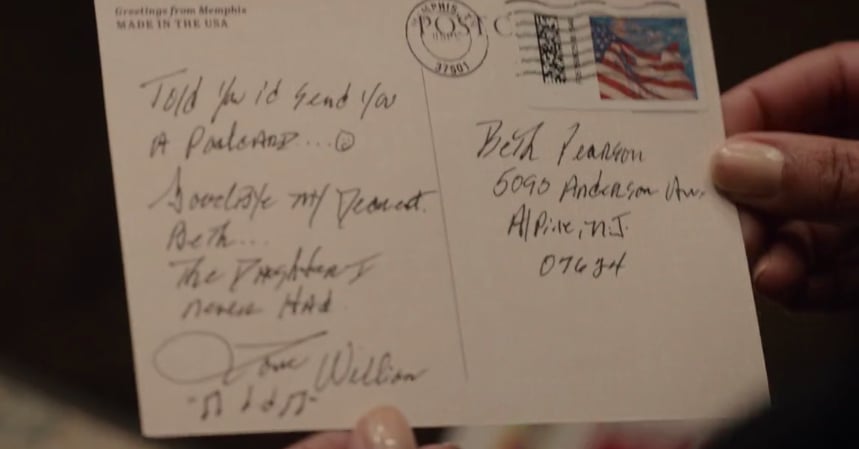 Greetings from Memphis
MADE IN THE USA
MEMPHIS
POST C
37501
Told You i'd Send You
A Postcard....☺
Goodbye my Dearest
Beth...
The Daughter I
never Had
Love William
Beth Pearson
5090 Anderson Av.
Alpine, N.J.
07624